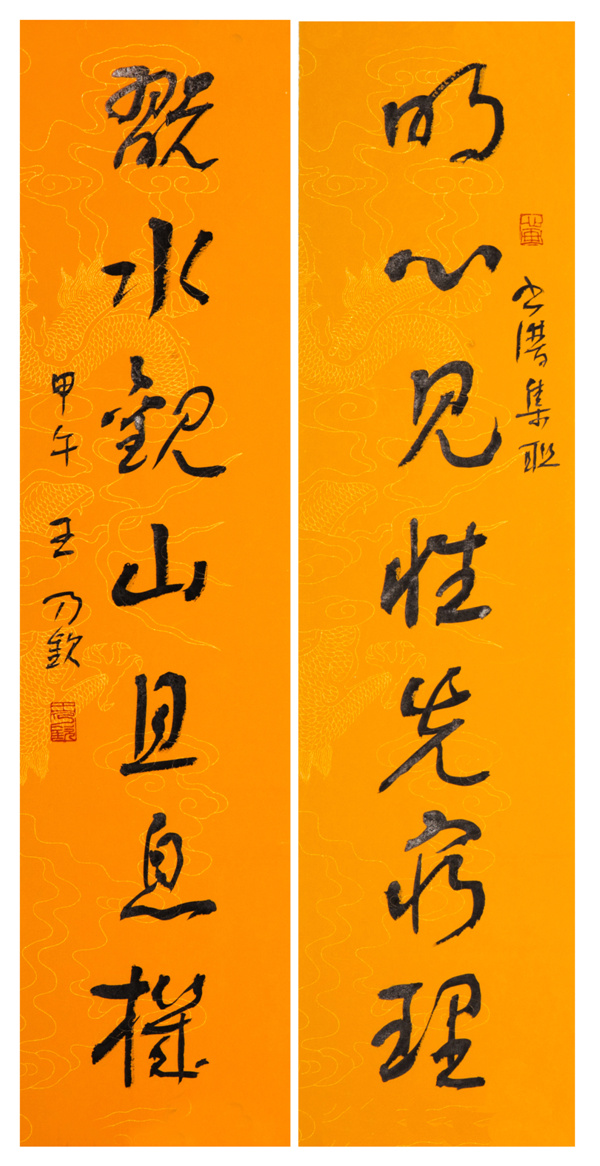 書譜集聯
明心見性先窮理
翫水觀山且息機
甲午 王乃欽